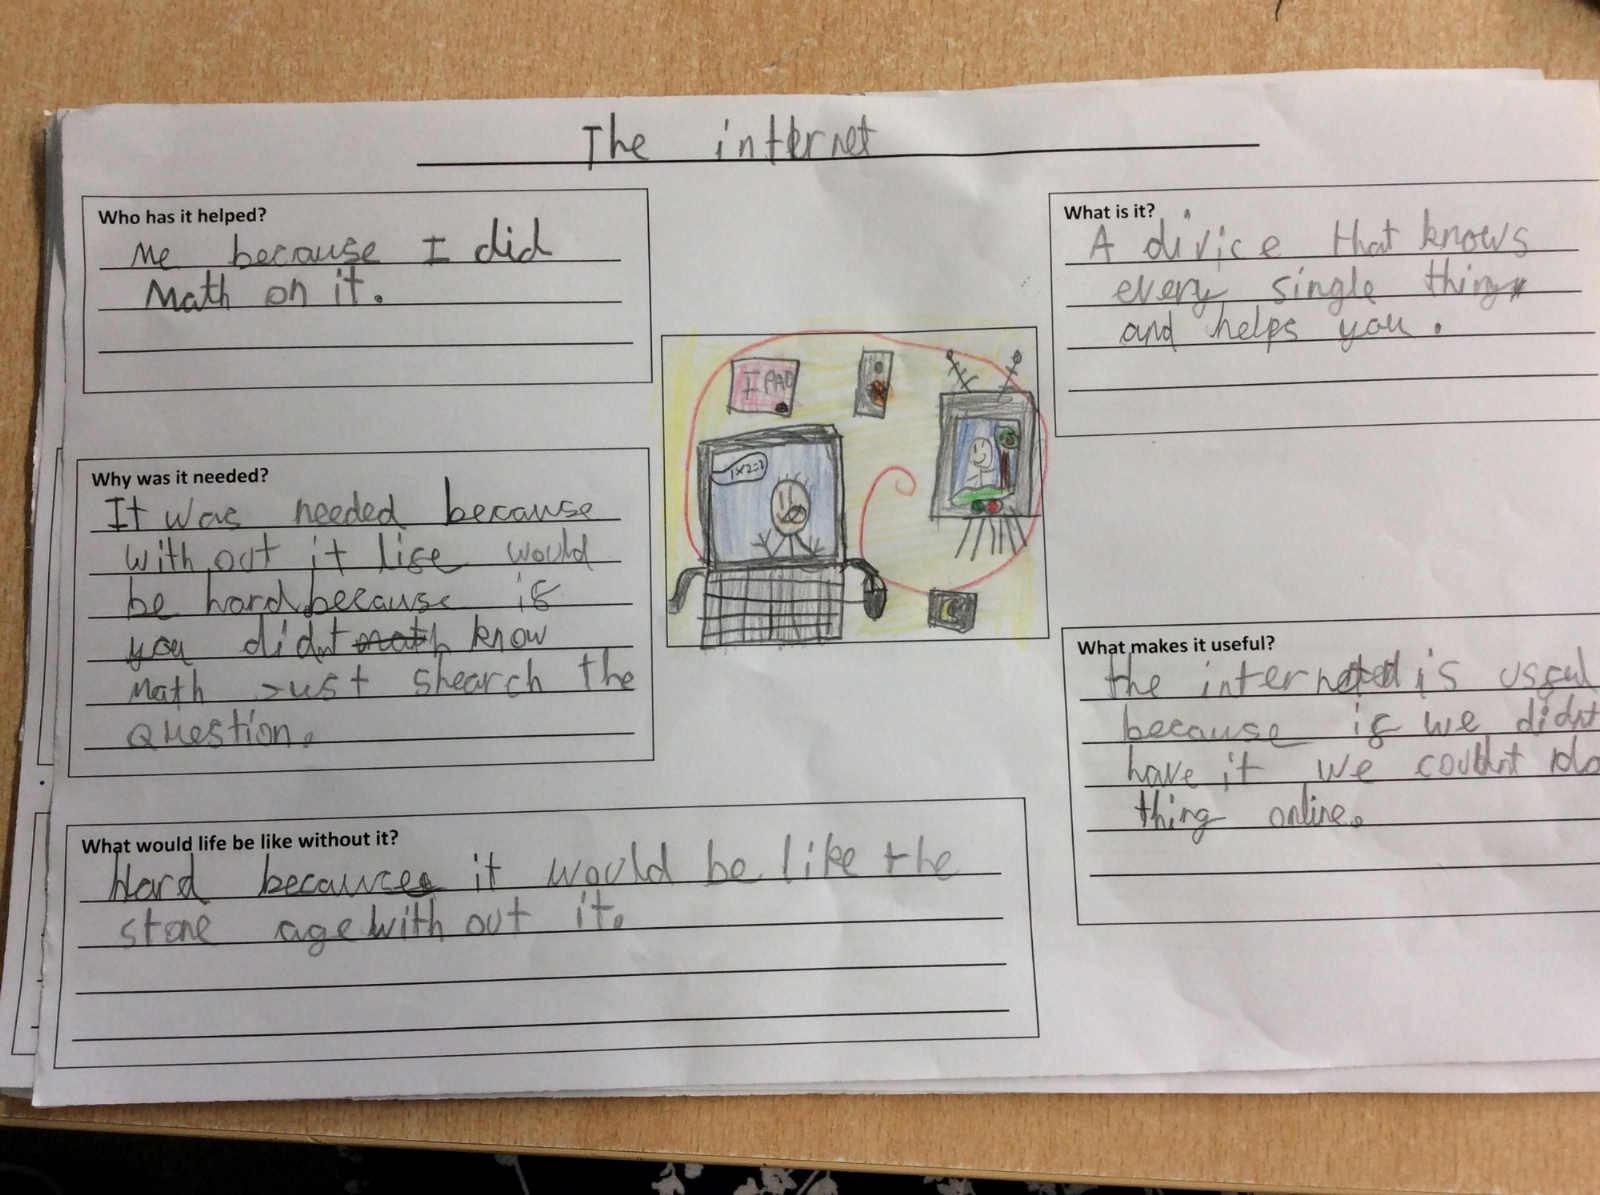 The internet
Who has it helped?
Me because I did
Math on it.
What is it?
A divice that knows
every single thing
and helps you.
Why was it needed?
It was needed because
with out it life would
be hard because if
you didnt math know
Math Just shearch the
question.
I PAD
1x2=2
What makes it useful?
the internet is useful
because if we didnt
have it we couldnt do
thing online.
What would life be like without it?
Hard because it would be like the
stone age with out it.